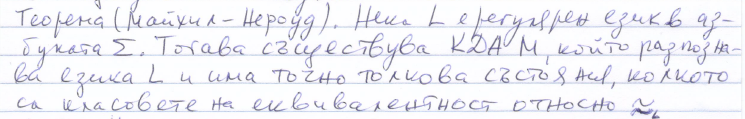 Теорема (Майхил-Нероуд). Нека L е регулярен език в аз-
буката Σ. Тогава съществува КДА M, който разпозна-
ва езика L и има точно толкова състояния, колкото
са класовете на еквивалентност относно ≈L